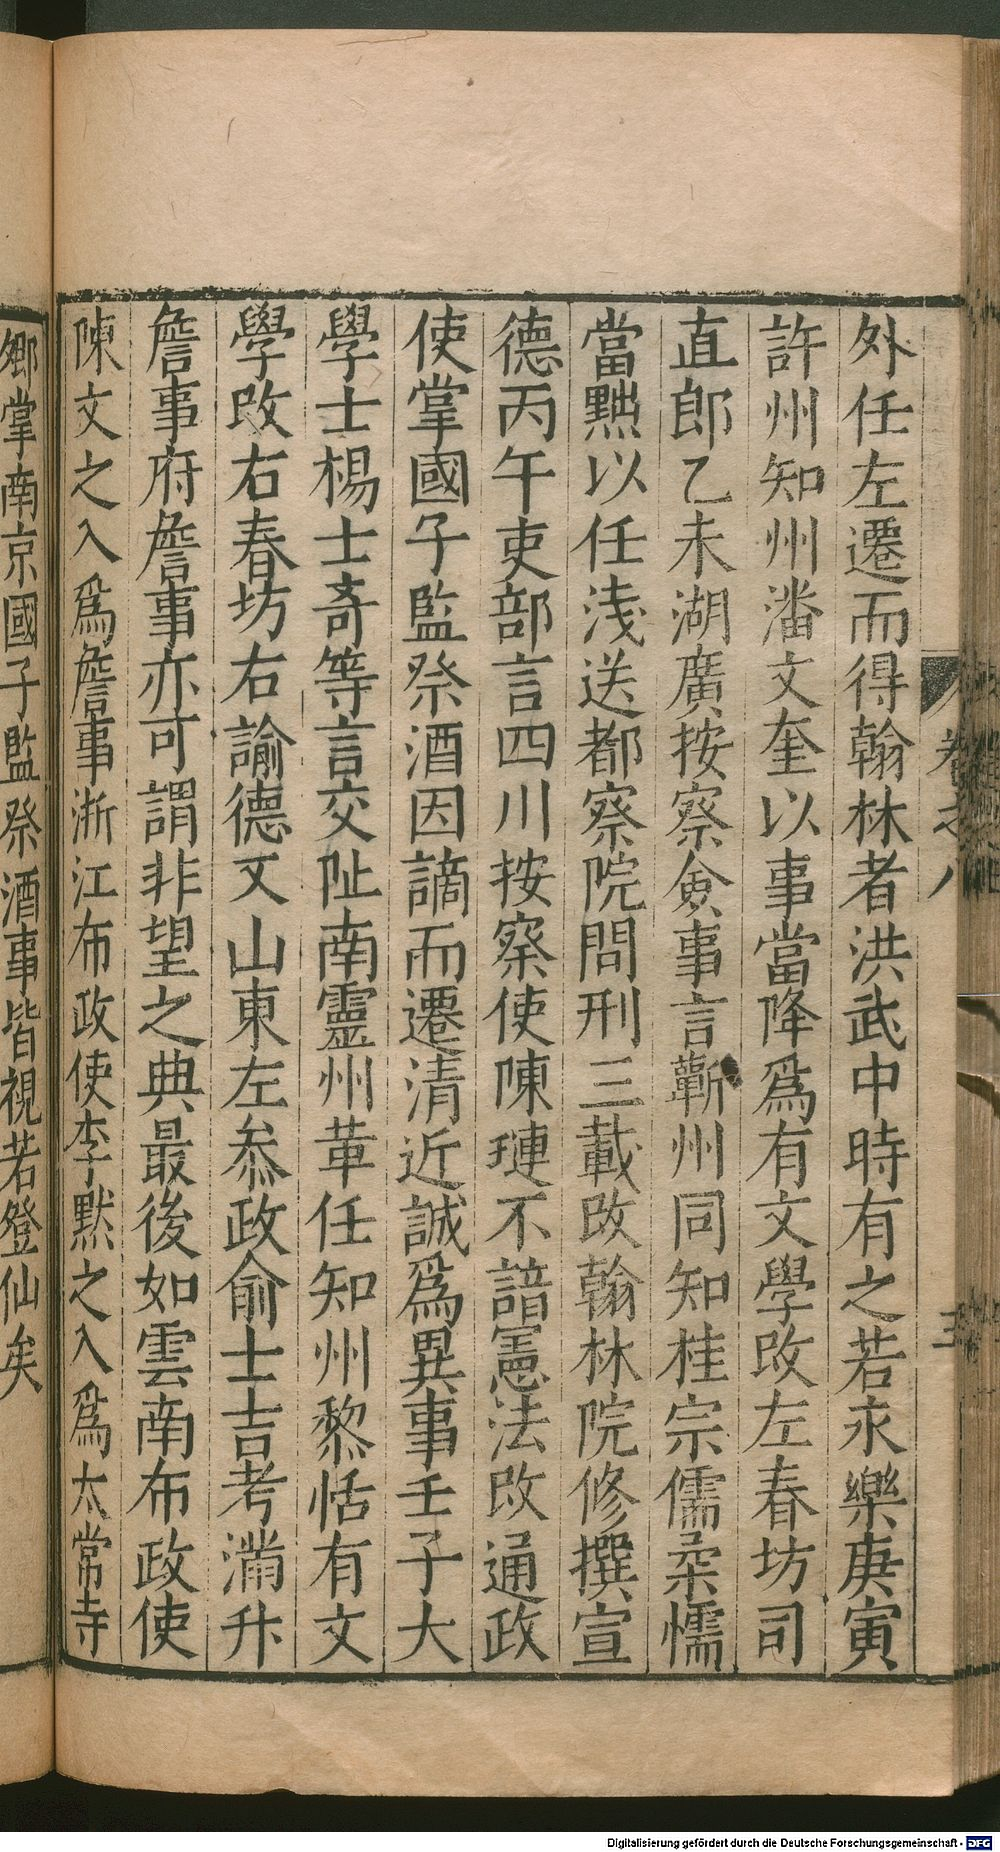 卷之八
三
外任左遷而得翰林者洪武中時有之若永樂庚寅
許州知州潘文奎以事當降爲有文學改左春坊司
直郎乙未湖廣按察僉事言蘄州同知桂宗儒柔懦
當黜以任浅送都察院問刑三載改翰林院修撰宣
德丙午吏部言四川按察使陳璉不諳憲法改通政
使掌國子監祭酒因謫而遷清近誠爲異事壬子大
學士楊士奇等言交阯南靈州革任知州黎恬有文
學改右春坊右諭德又山東左叅政俞士吉考滿升
詹事府詹事亦可謂非望之典最後如雲南布政使
陳文之入爲詹事浙江布政使李默之入爲太常寺
卿掌南京國子監祭酒事皆視若登仙矣
Digitalisierung gefördert durch die Deutsche Forschungsgemeinschaft - DFG